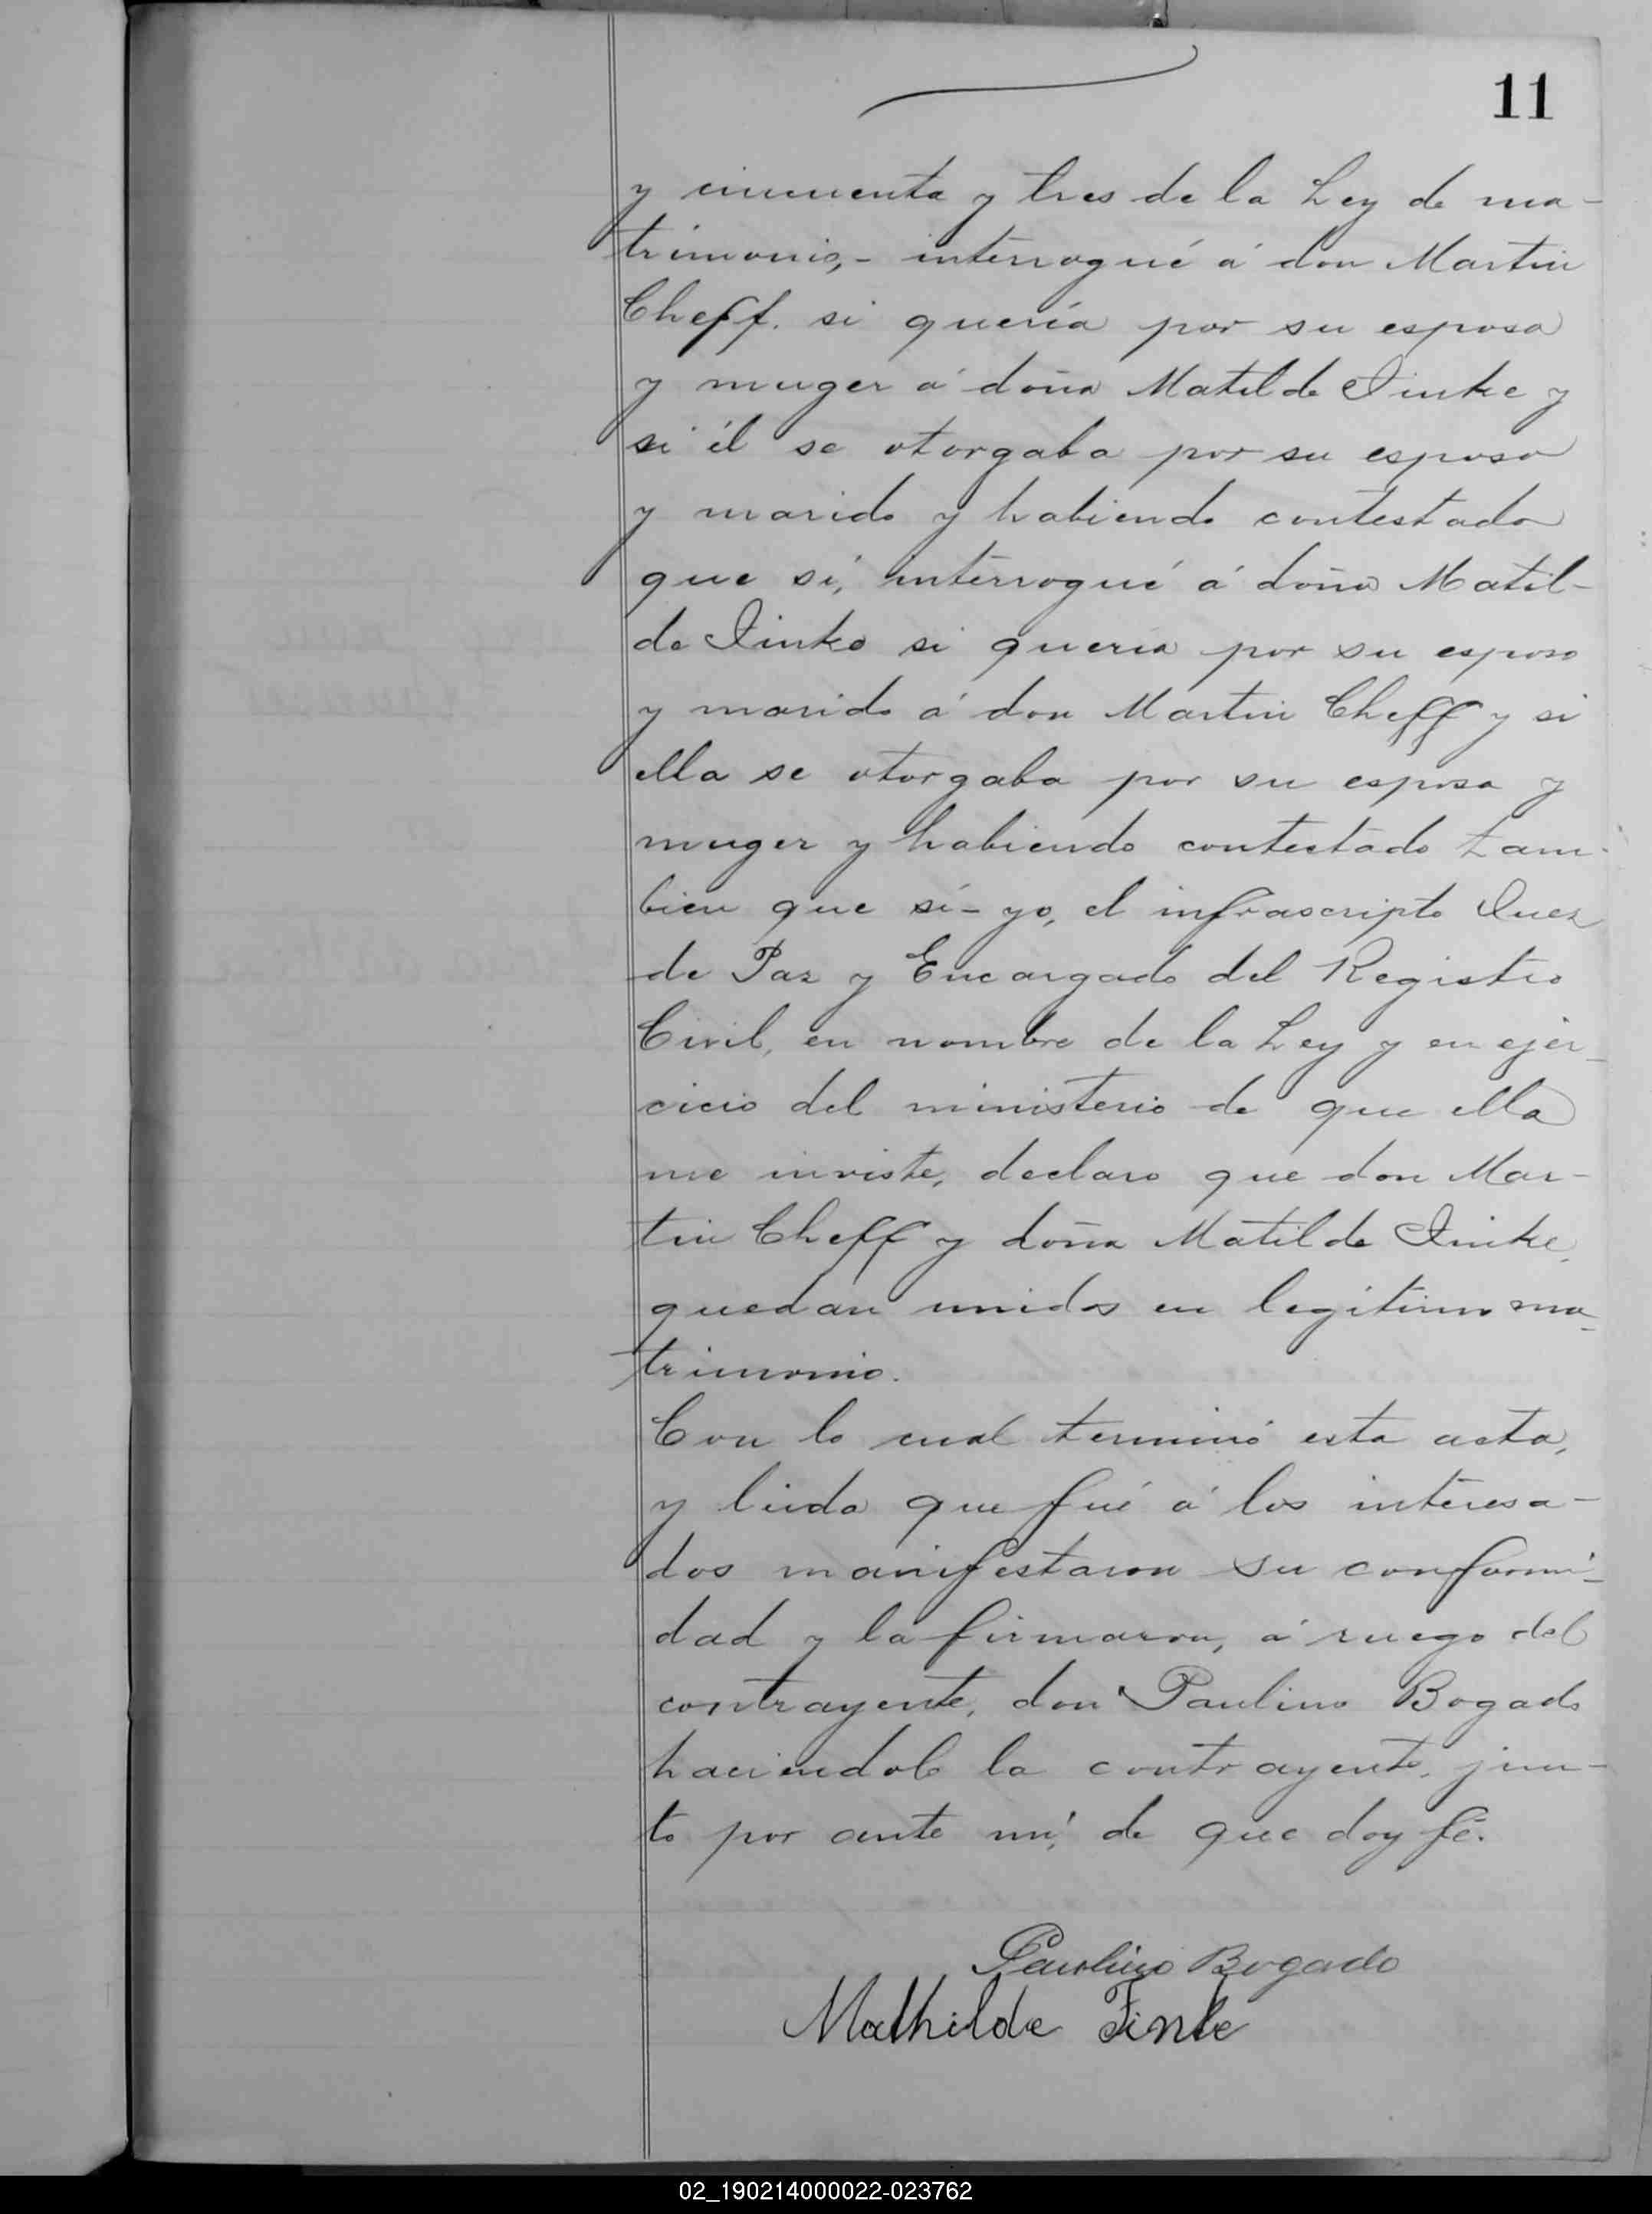 11
y cincuenta y tres de la Ley de ma-
trimonio,- interrogué á don Martin
Cheff. si quería por su esposa
y muger á doña Matilde Finke y
si él se otorgaba por su esposo
y marido y habiendo contestado
que sí, interrogué á doña Matil-
de Finke si quería por su esposo
y marido á don Martin Cheff y si
ella se otorgaba por su esposa y
muger y habiendo contestado tam-
bien que sí- yo, el infrascripto Juez
de Paz y Encargado del Registro
Civil, en nombre de la Ley y en ejer-
cicio del ministerio de que ella
me inviste, declaro que don Mar-
tin Cheff y doña Matilde Finke,
quedan unidos en legítimo ma-
trimonio.
Con lo cual terminó esta acta,
y leida que fué á los interesa-
dos manifestaron su conformi-
dad y la firmaron, á ruego del
contrayente, don Paulino Bogado
haciendolo la contrayente, jun-
to por ante mí, de que doy fé.
Paulino Bogado
Mathilde Finke
02_190214000022-023762